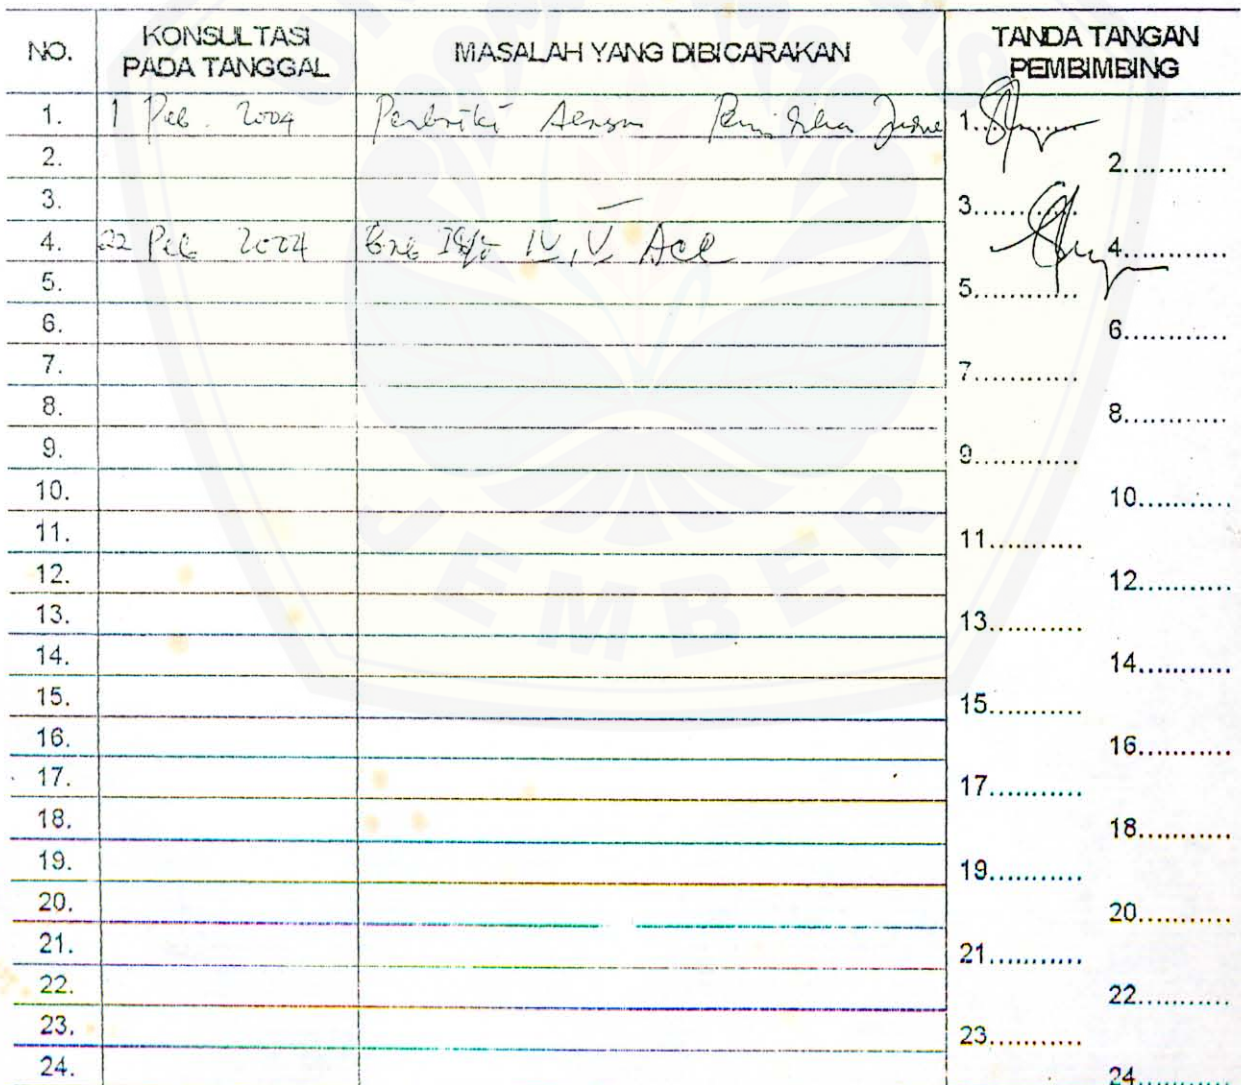 NO. KONSULTASI PADA TANGGAL MASALAH YANG DIBICARAKAN TANDA TANGAN PEMBIMBING
1. 1 Peb. 2004 Perbaiki 1............
2. 2............
3. 3............
4. 22 Peb 2004 IV, V Acc 4............
5. 5............
6. 6............
7. 7............
8. 8............
9. 9............
10. 10............
11. 11............
12. 12............
13. 13............
14. 14............
15. 15............
16. 16............
17. 17............
18. 18............
19. 19............
20. 20............
21. 21............
22. 22............
23. 23............
24. 24............
JEMBER